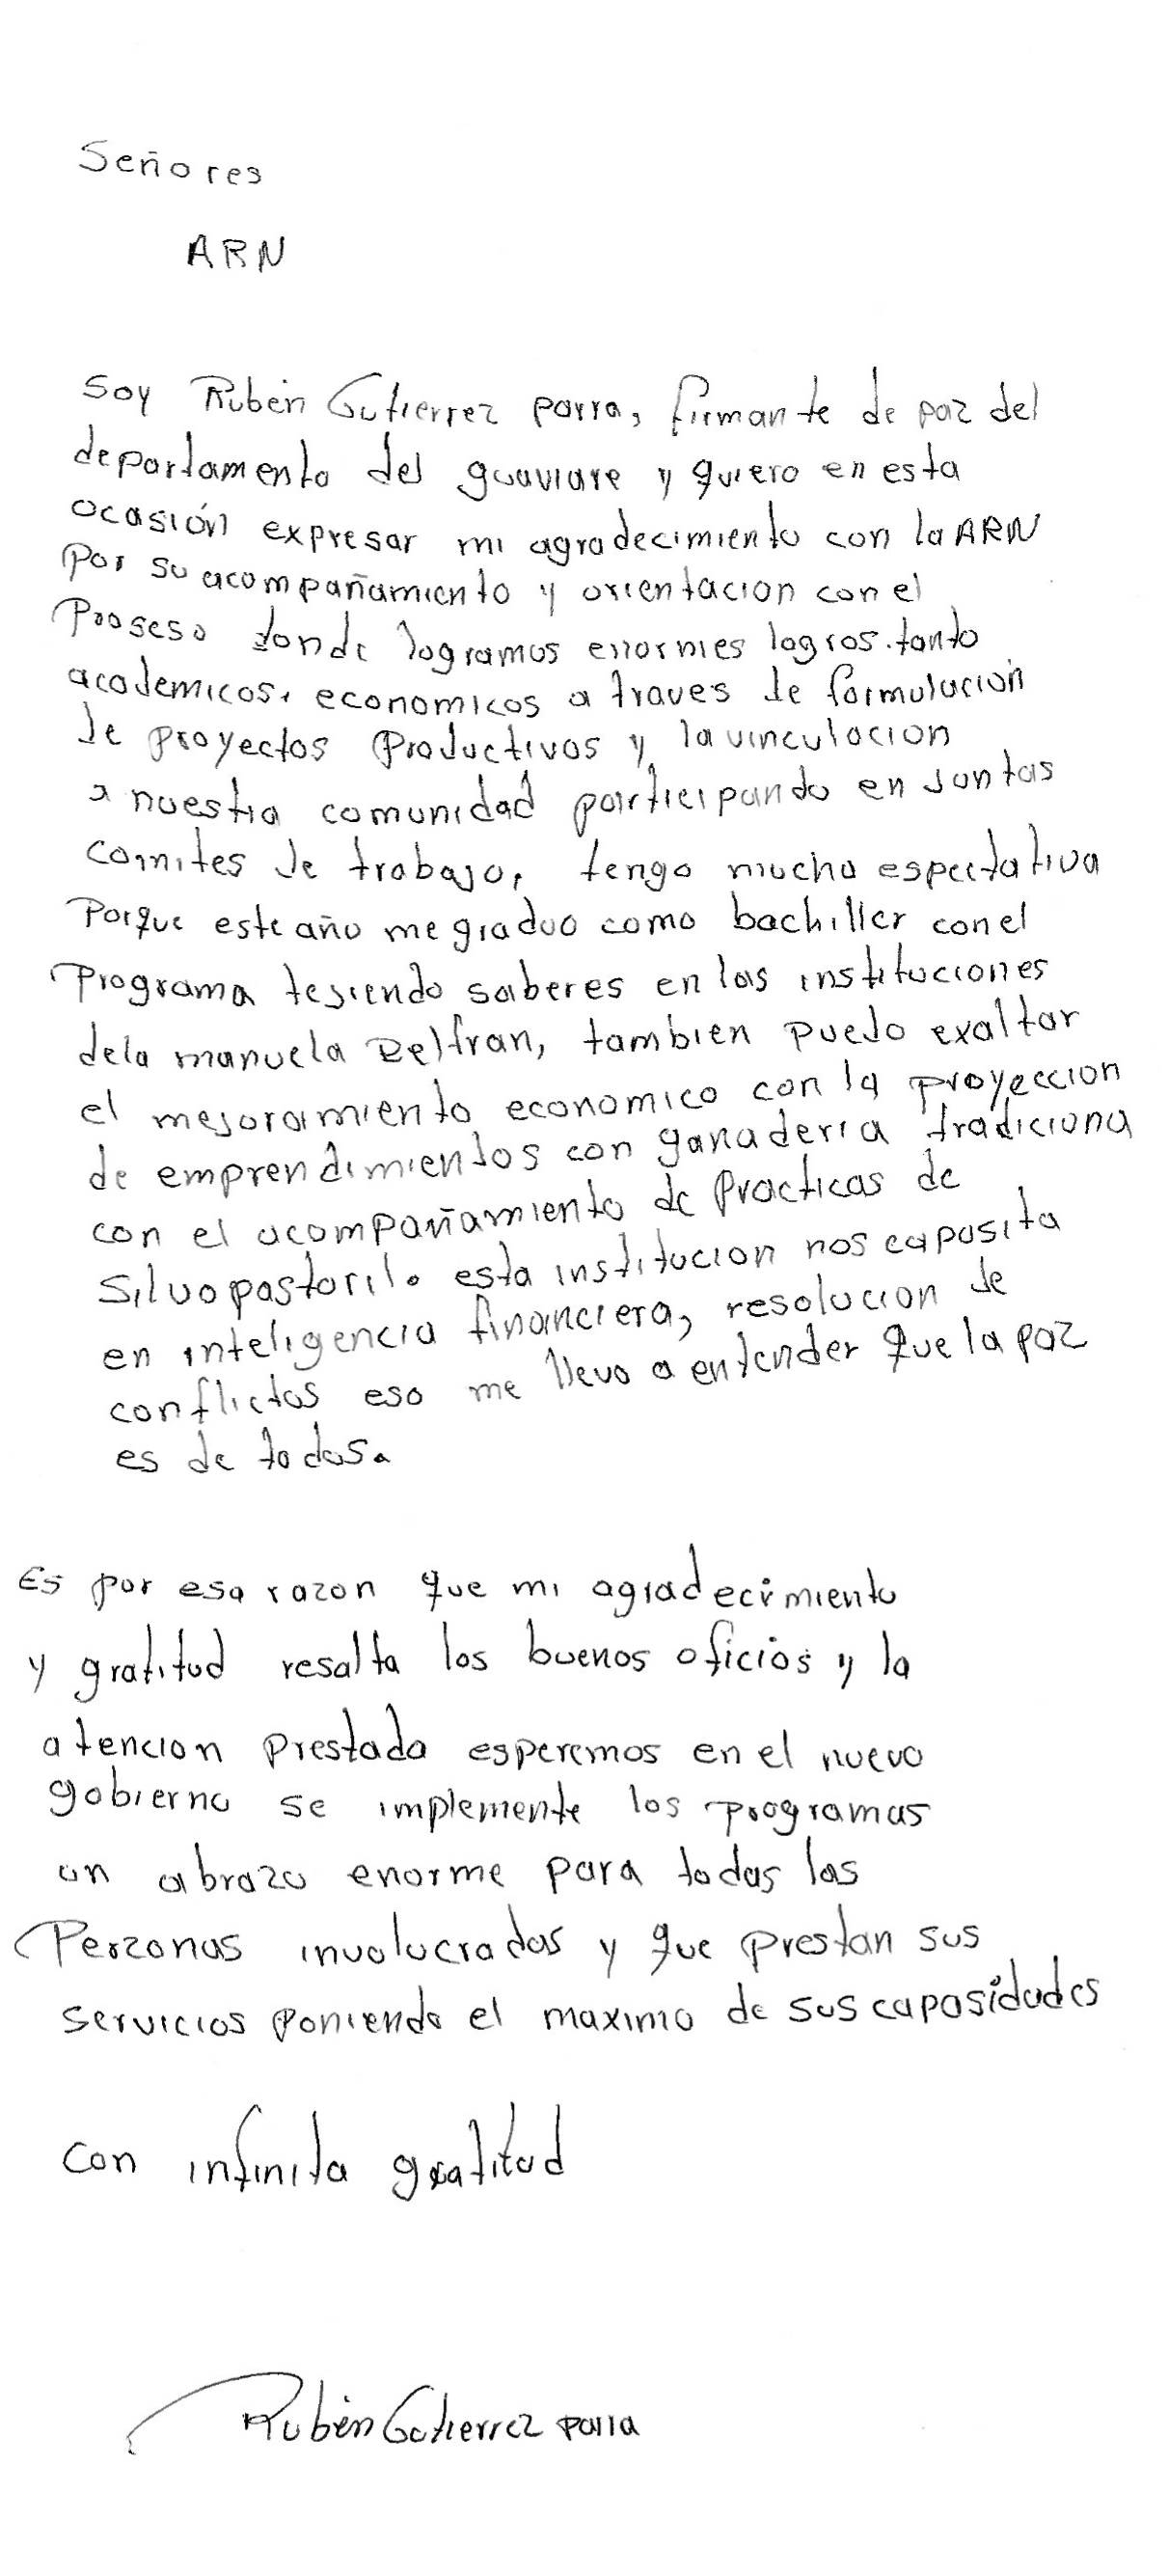 Señores
ARN
Soy Rubén Gutierrez parra, firmante de paz del
departamento del guaviare y quiero en esta
ocasión expresar mi agradecimiento con la ARN
por su acompañamiento y orientacion con el
Proseso donde logramos enormes logros. tanto
academicos, economicos a traves de formulacion
de proyectos Productivos y la vinculacion
a nuestra comunidad participando en juntas
comites de trabajo, tengo mucha espectativa
Porque este año me graduo como bachiller con el
Programa tejiendo saberes en las instituciones
dela manuela Beltran, tambien puedo exaltar
el mejoramiento economico con la proyeccion
de emprendimientos con ganaderia tradiciona
con el acompañamiento de Practicas de
Silvopastoril. esta institucion nos capasita
en inteligencia financiera, resolucion de
conflictos eso me llevo a entender que la paz
es de todos.
Es por esa razon que mi agradecimiento
y gratitud resalta los buenos oficios y la
atencion prestada esperemos en el nuevo
gobierno se implemente los programas
un abrazo enorme para todas las
Perzonas involucradas y que prestan sus
servicios poniendo el maximo de sus capasidades
con infinita gratitud
Rubén Gutierrez parra